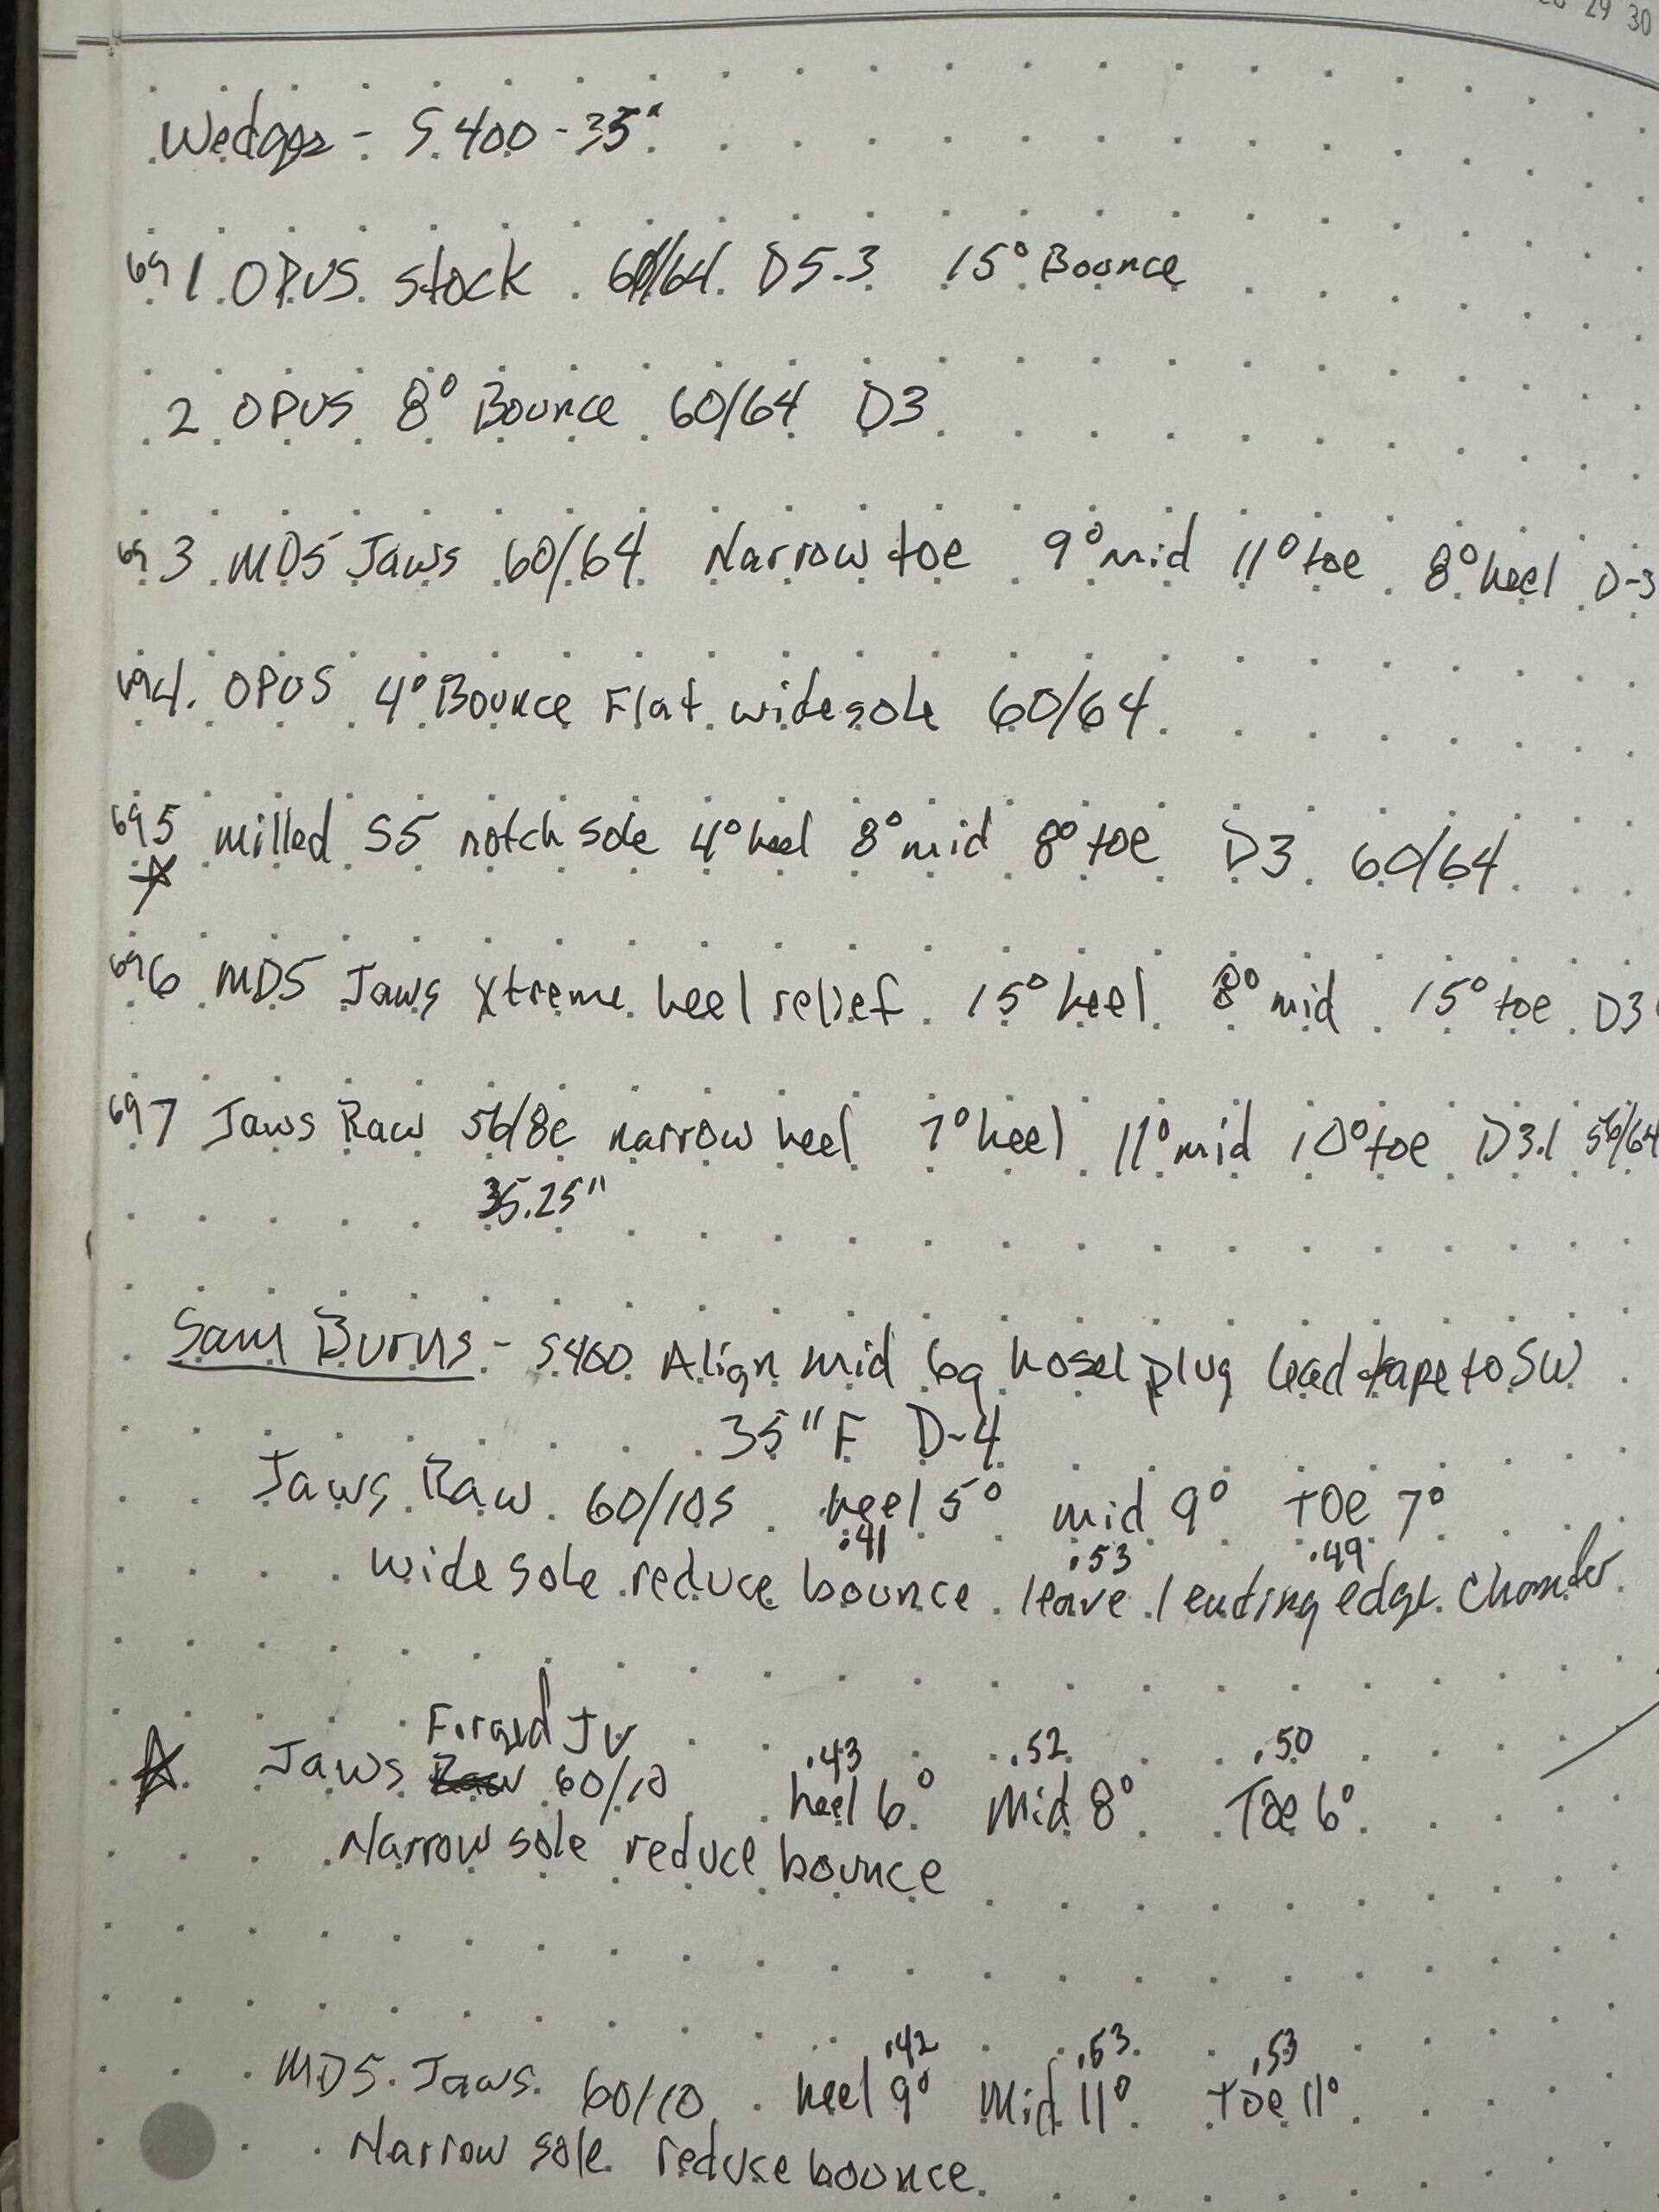 29 30
Wedges - S400 - 35"
69 1. OPUS stock 60/64 D5.3 15° Bounce
2 OPUS 8° Bounce 60/64 D3
69 3 MD5 Jaws 60/64 Narrow toe 9° mid 11° toe 8° heel D-3
69 4. OPUS 4° Bounce Flat wide sole 60/64
69 5 milled S5 notch sole 4° heel 8° mid 8° toe D3 60/64
69 6 MD5 Jaws Xtreme heel relief 15° heel 8° mid 15° toe D3
69 7 Jaws Raw 56/8c narrow heel 7° heel 11° mid 10° toe D3.1 56/64
35.25"
Sam Burns - S400 Align mid 6g hosel plug lead tape to SW
35" F D-4
Jaws Raw 60/10S heel 5° mid 9° Toe 7°
.41 .53 .49
wide sole reduce bounce leave leading edge Chamfer
Forged JV .43 .52 .50
Jaws Raw 60/10 heel 6° Mid 8° Toe 6°
Narrow sole reduce bounce
.42 .53 .53
MD5 Jaws 60/10 heel 9° Mid 11° Toe 11°
Narrow sole reduse bounce.